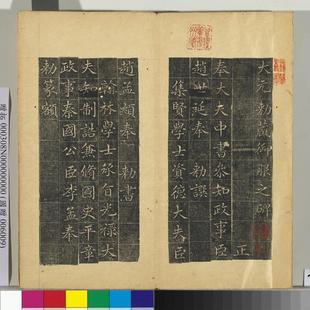 大元勅藏御服之碑
正
奉大夫中書叅知政事臣
趙世延奉 勅撰
集賢學士資德大夫臣
趙孟頫奉 勅書
翰林學士承旨光祿大
夫知制誥兼脩國史平章
政事秦國公臣李孟奉
勅篆額